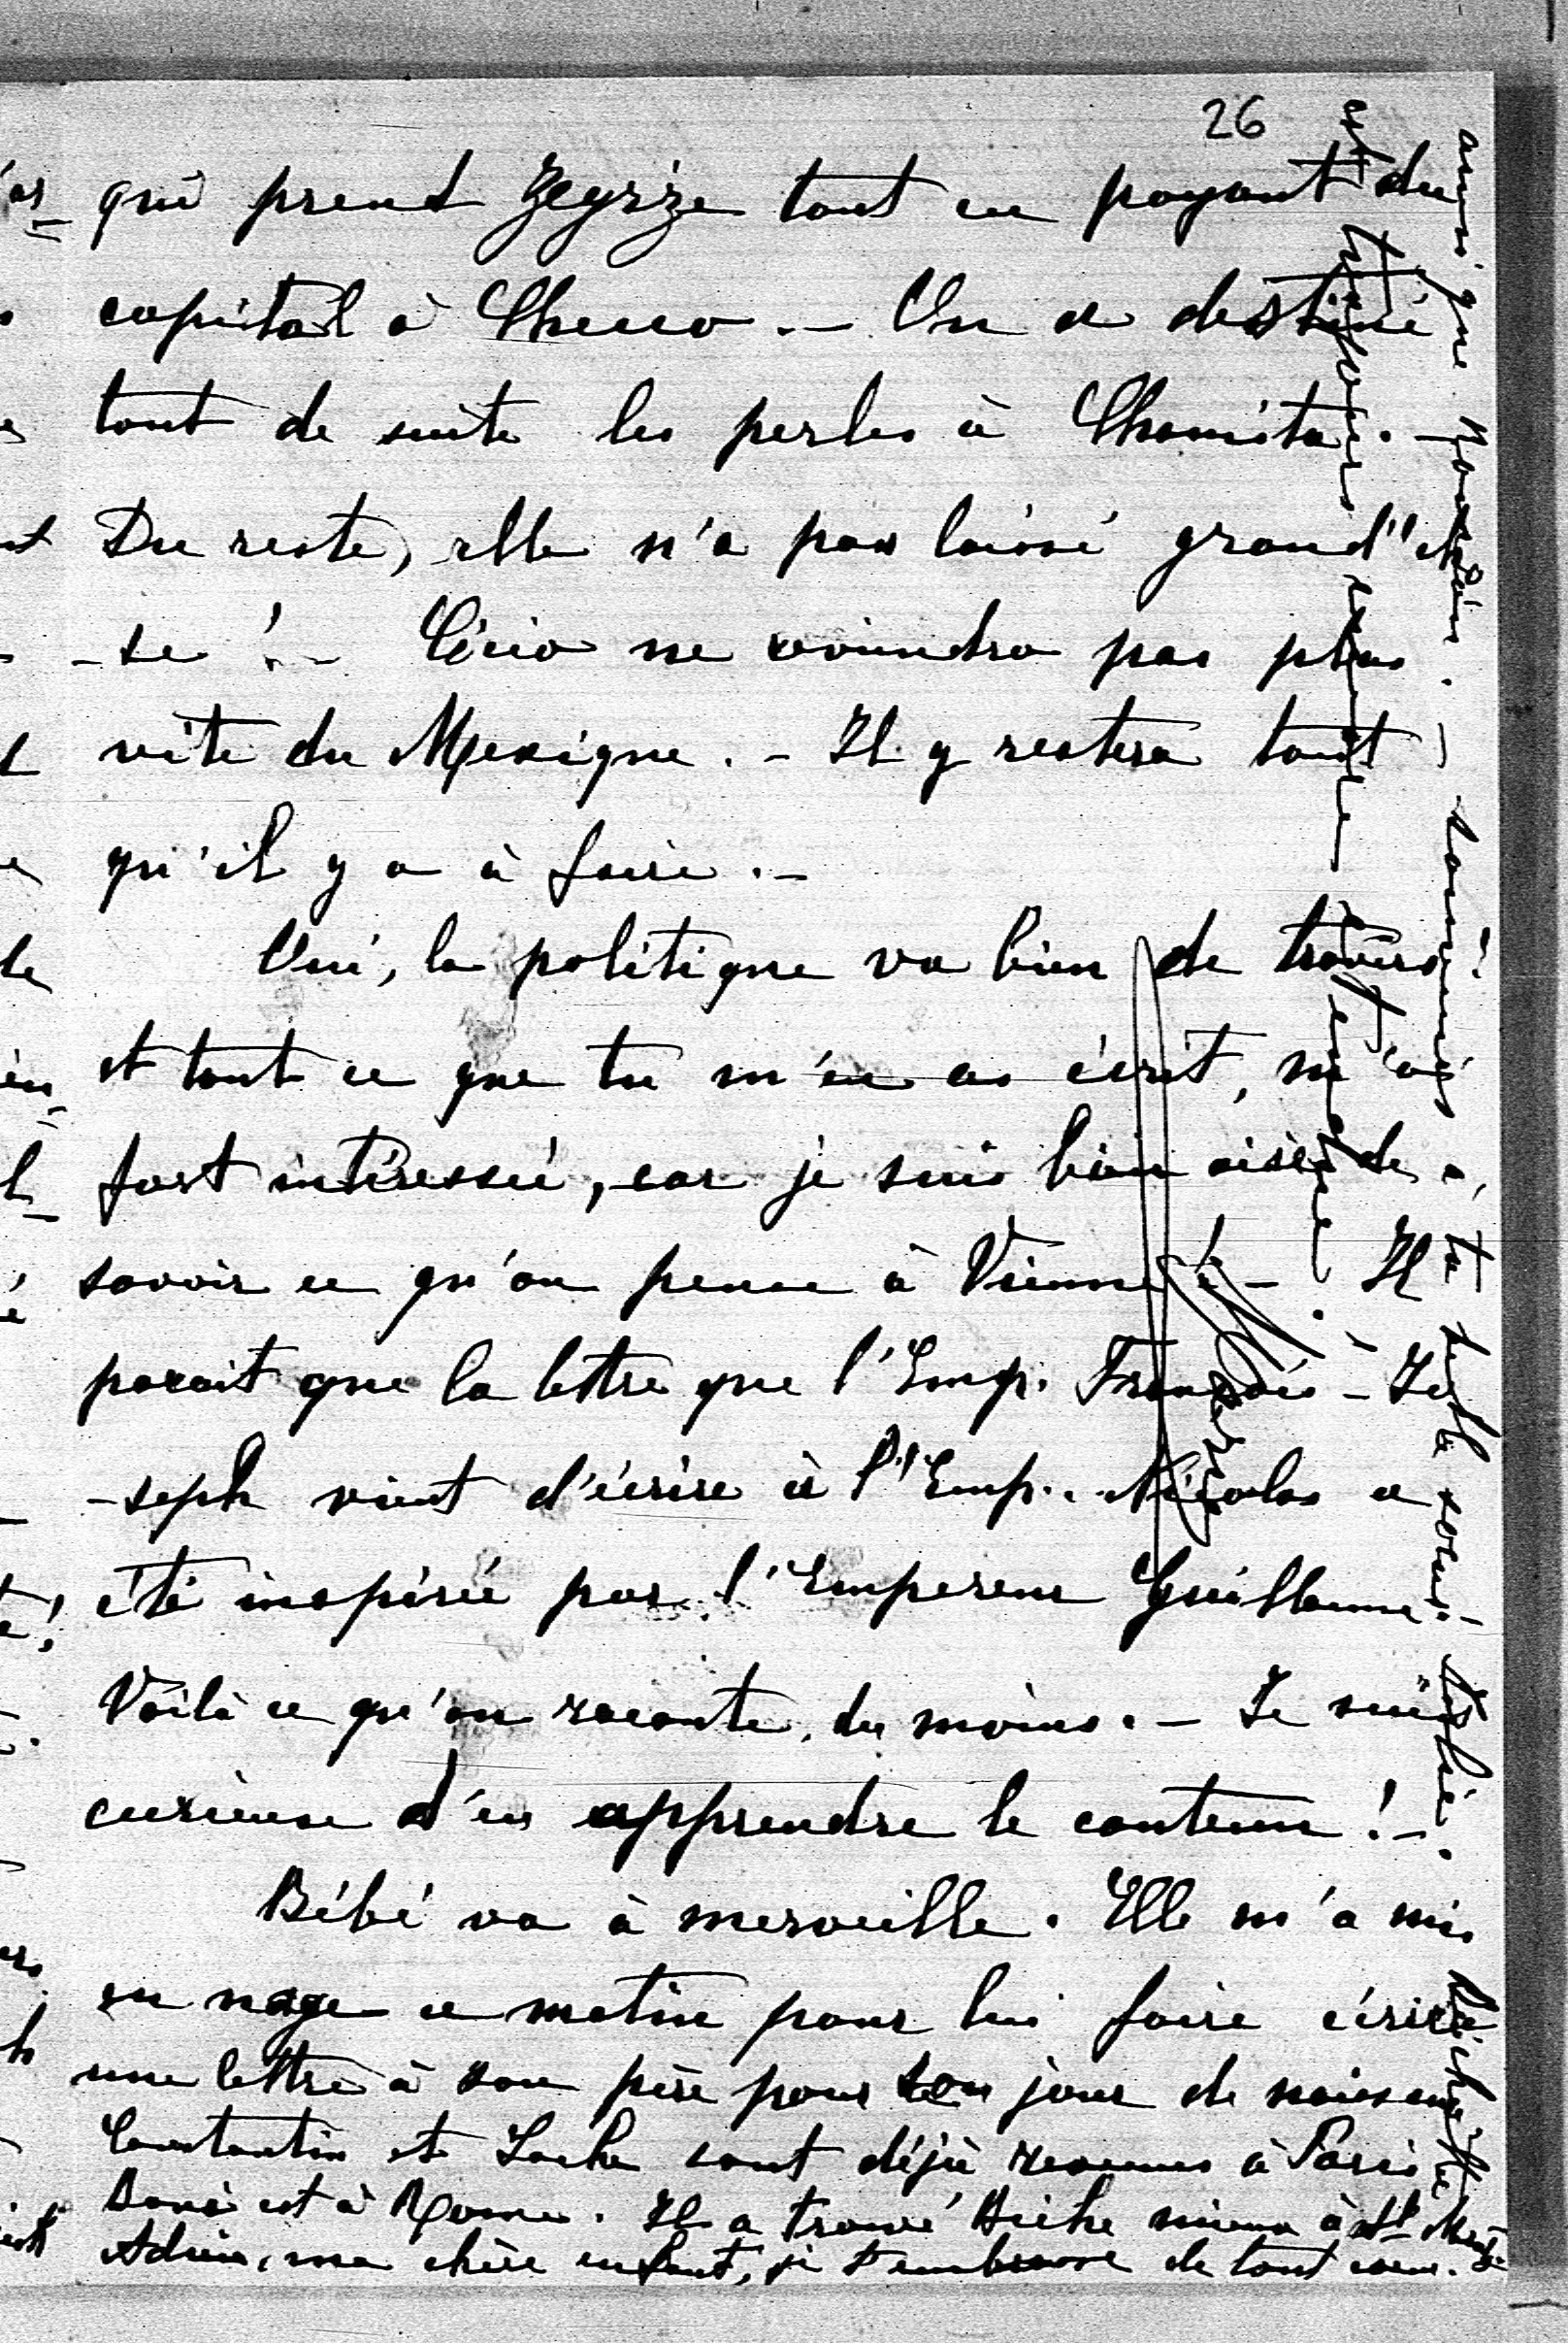 26
qui prend Zegrze tout en payant du
capital à Checco. — On a destiné
tout de suite les perles à Chamista. —
Du reste, elle n'a pas laissé grand' cho
-se ! — Cécio ne reviendra pas plus
vite du Mexique. — Il y restera tant
qu'il y a à faire. —
Oui, la politique va bien de travers
et tout ce que tu m'en as écrit, m'a
fort intéressée, car je suis bien aise de
savoir ce qu'on pense à Vienne ! — Il
parait que la lettre que l'Emp. François-Jo
-seph vient d'écrire à l'Emp. Nicolas a
été inspirée par l'Empereur Guillaume. —
Voilà ce qu'on raconte, du moins. — Je suis
curieuse d'en apprendre le contenu ! —
Bébé va à merveille. Elle m'a mis
en nage ce matin pour lui faire écrire
une lettre à son père pour son jour de naissance
Constantin et sont déjà revenus à Paris
est à Rome. Il a trouvé Biche mieux à St
Adieu, ma chère enfant, je t'embrasse de tout cœur.
ainsi que . — à ta belle sœur. —
est toujours